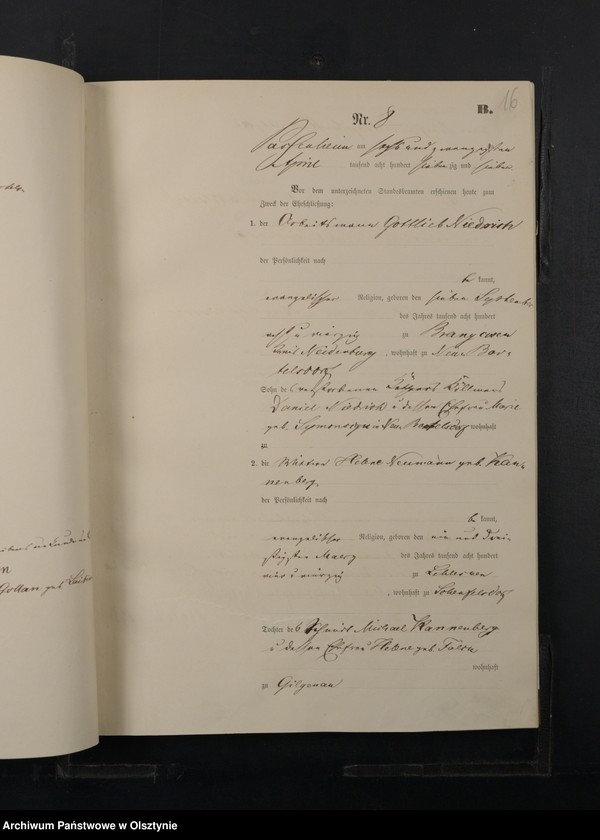 B. 16
Nr. 8
Passenheim am sechs und zwanzigsten
April tausend acht hundert sieben zig und sieben
Vor dem unterzeichneten Standesbeamten erschienen heute zum
Zweck der Eheschließung:
1. der Arbeitsmann Gottlieb Niedrich
der Persönlichkeit nach
be kannt,
evangelischer Religion, geboren den sieben September
des Jahres tausend acht hundert
acht u vierzig zu
Kreis Neidenburg, wohnhaft zu Neu Bar-
telsdorf
Sohn des verstorbenen
Daniel Niedrich u dessen Ehefrau Marie
geb. wohnhaft
zu
2. die Wittwe Helene Neumann geb. Kan-
nenberg,
der Persönlichkeit nach
be kannt,
evangelischer Religion, geboren den ein und drei-
ßigsten Maerz des Jahres tausend acht hundert
vier u vierzig zu
, wohnhaft zu
Tochter des Schmied Michael Kannenberg
u dessen Ehefrau Helene geb
wohnhaft
zu Gilgenau
Gollan geb
Archiwum Państwowe w Olsztynie